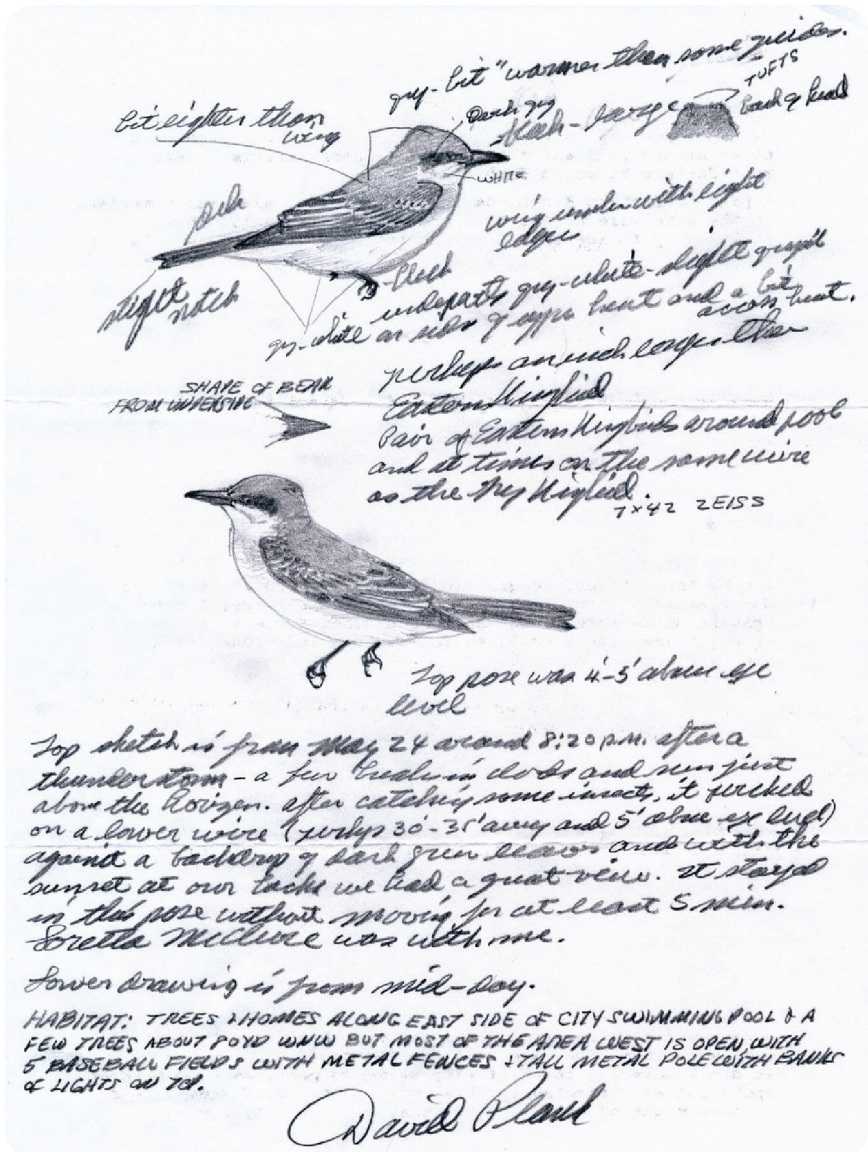 gray-bit "warmer than some guides.
TUFTS
back of head
bit lighter than
wing
Dark gray
black-large
WHITE
wing under with light
edges
dark
slight
notch
black
underparts gray-white-slight grayish
gray-white on sides of upper breast and a bit
across breast.
perhaps an inch longer than
Eastern Kingbird
SHAPE OF BEAK
FROM UNDERSIDE
Pair of Eastern Kingbirds around pool
and at times on the same wire
as the Gray Kingbird.
7x42 ZEISS
Top pose was 4'-5' above eye
level
Top sketch is from May 24 around 8:20 P.M. after a
thunderstorm - a few breaks in clouds and sun just
above the horizon. after catching some insects, it perched
on a lower wire (perhaps 30'-35' away and 5' above eye level)
against a backdrop of dark green leaves and with the
sunset at our backs we had a great view. It stayed
in this pose without moving for at least 5 min.
Loretta McClure was with me.
Lower drawing is from mid-day.
HABITAT: TREES & HOMES ALONG EAST SIDE OF CITY SWIMMING POOL & A
FEW TREES ABOUT POYD WNW BUT MOST OF THE AREA WEST IS OPEN WITH
5 BASEBALL FIELDS WITH METAL FENCES & TALL METAL POLE WITH BANKS
OF LIGHTS ON TOP.
David Plank